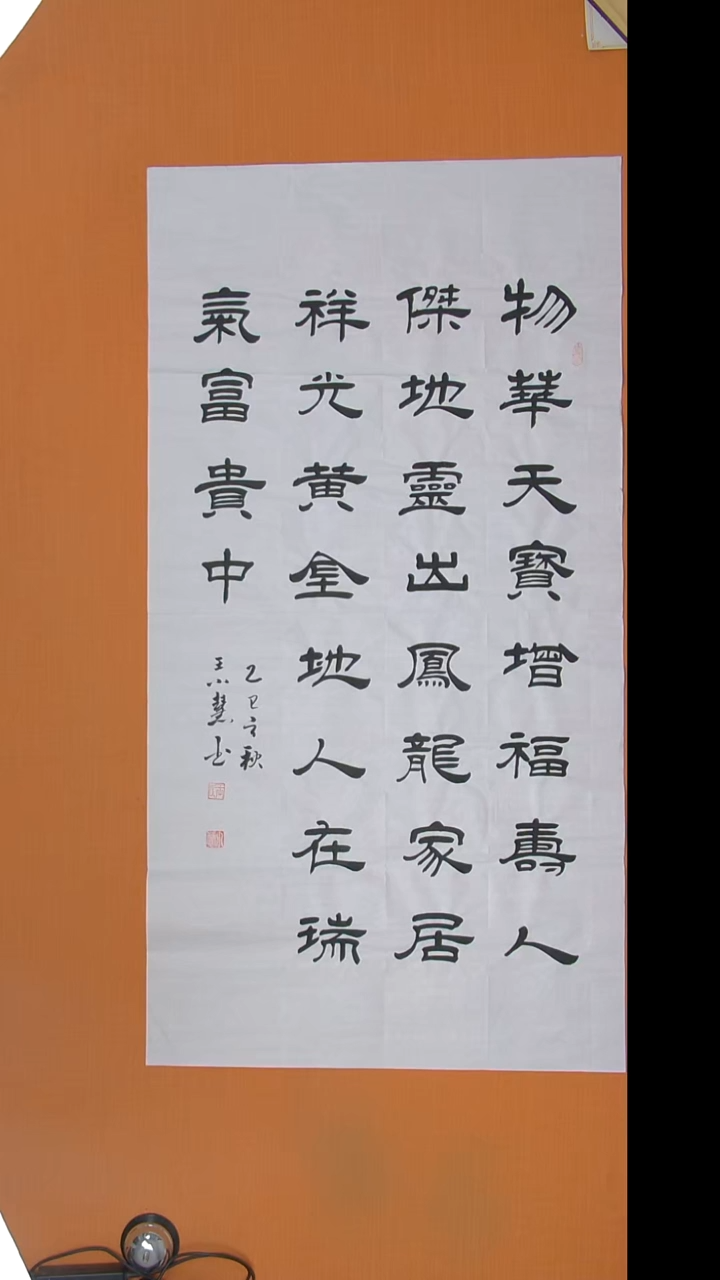 物華天寶增福壽人
傑地靈出鳳龍家居
祥光黄金地人在瑞
氣富貴中
乙巳之秋
王小慧书